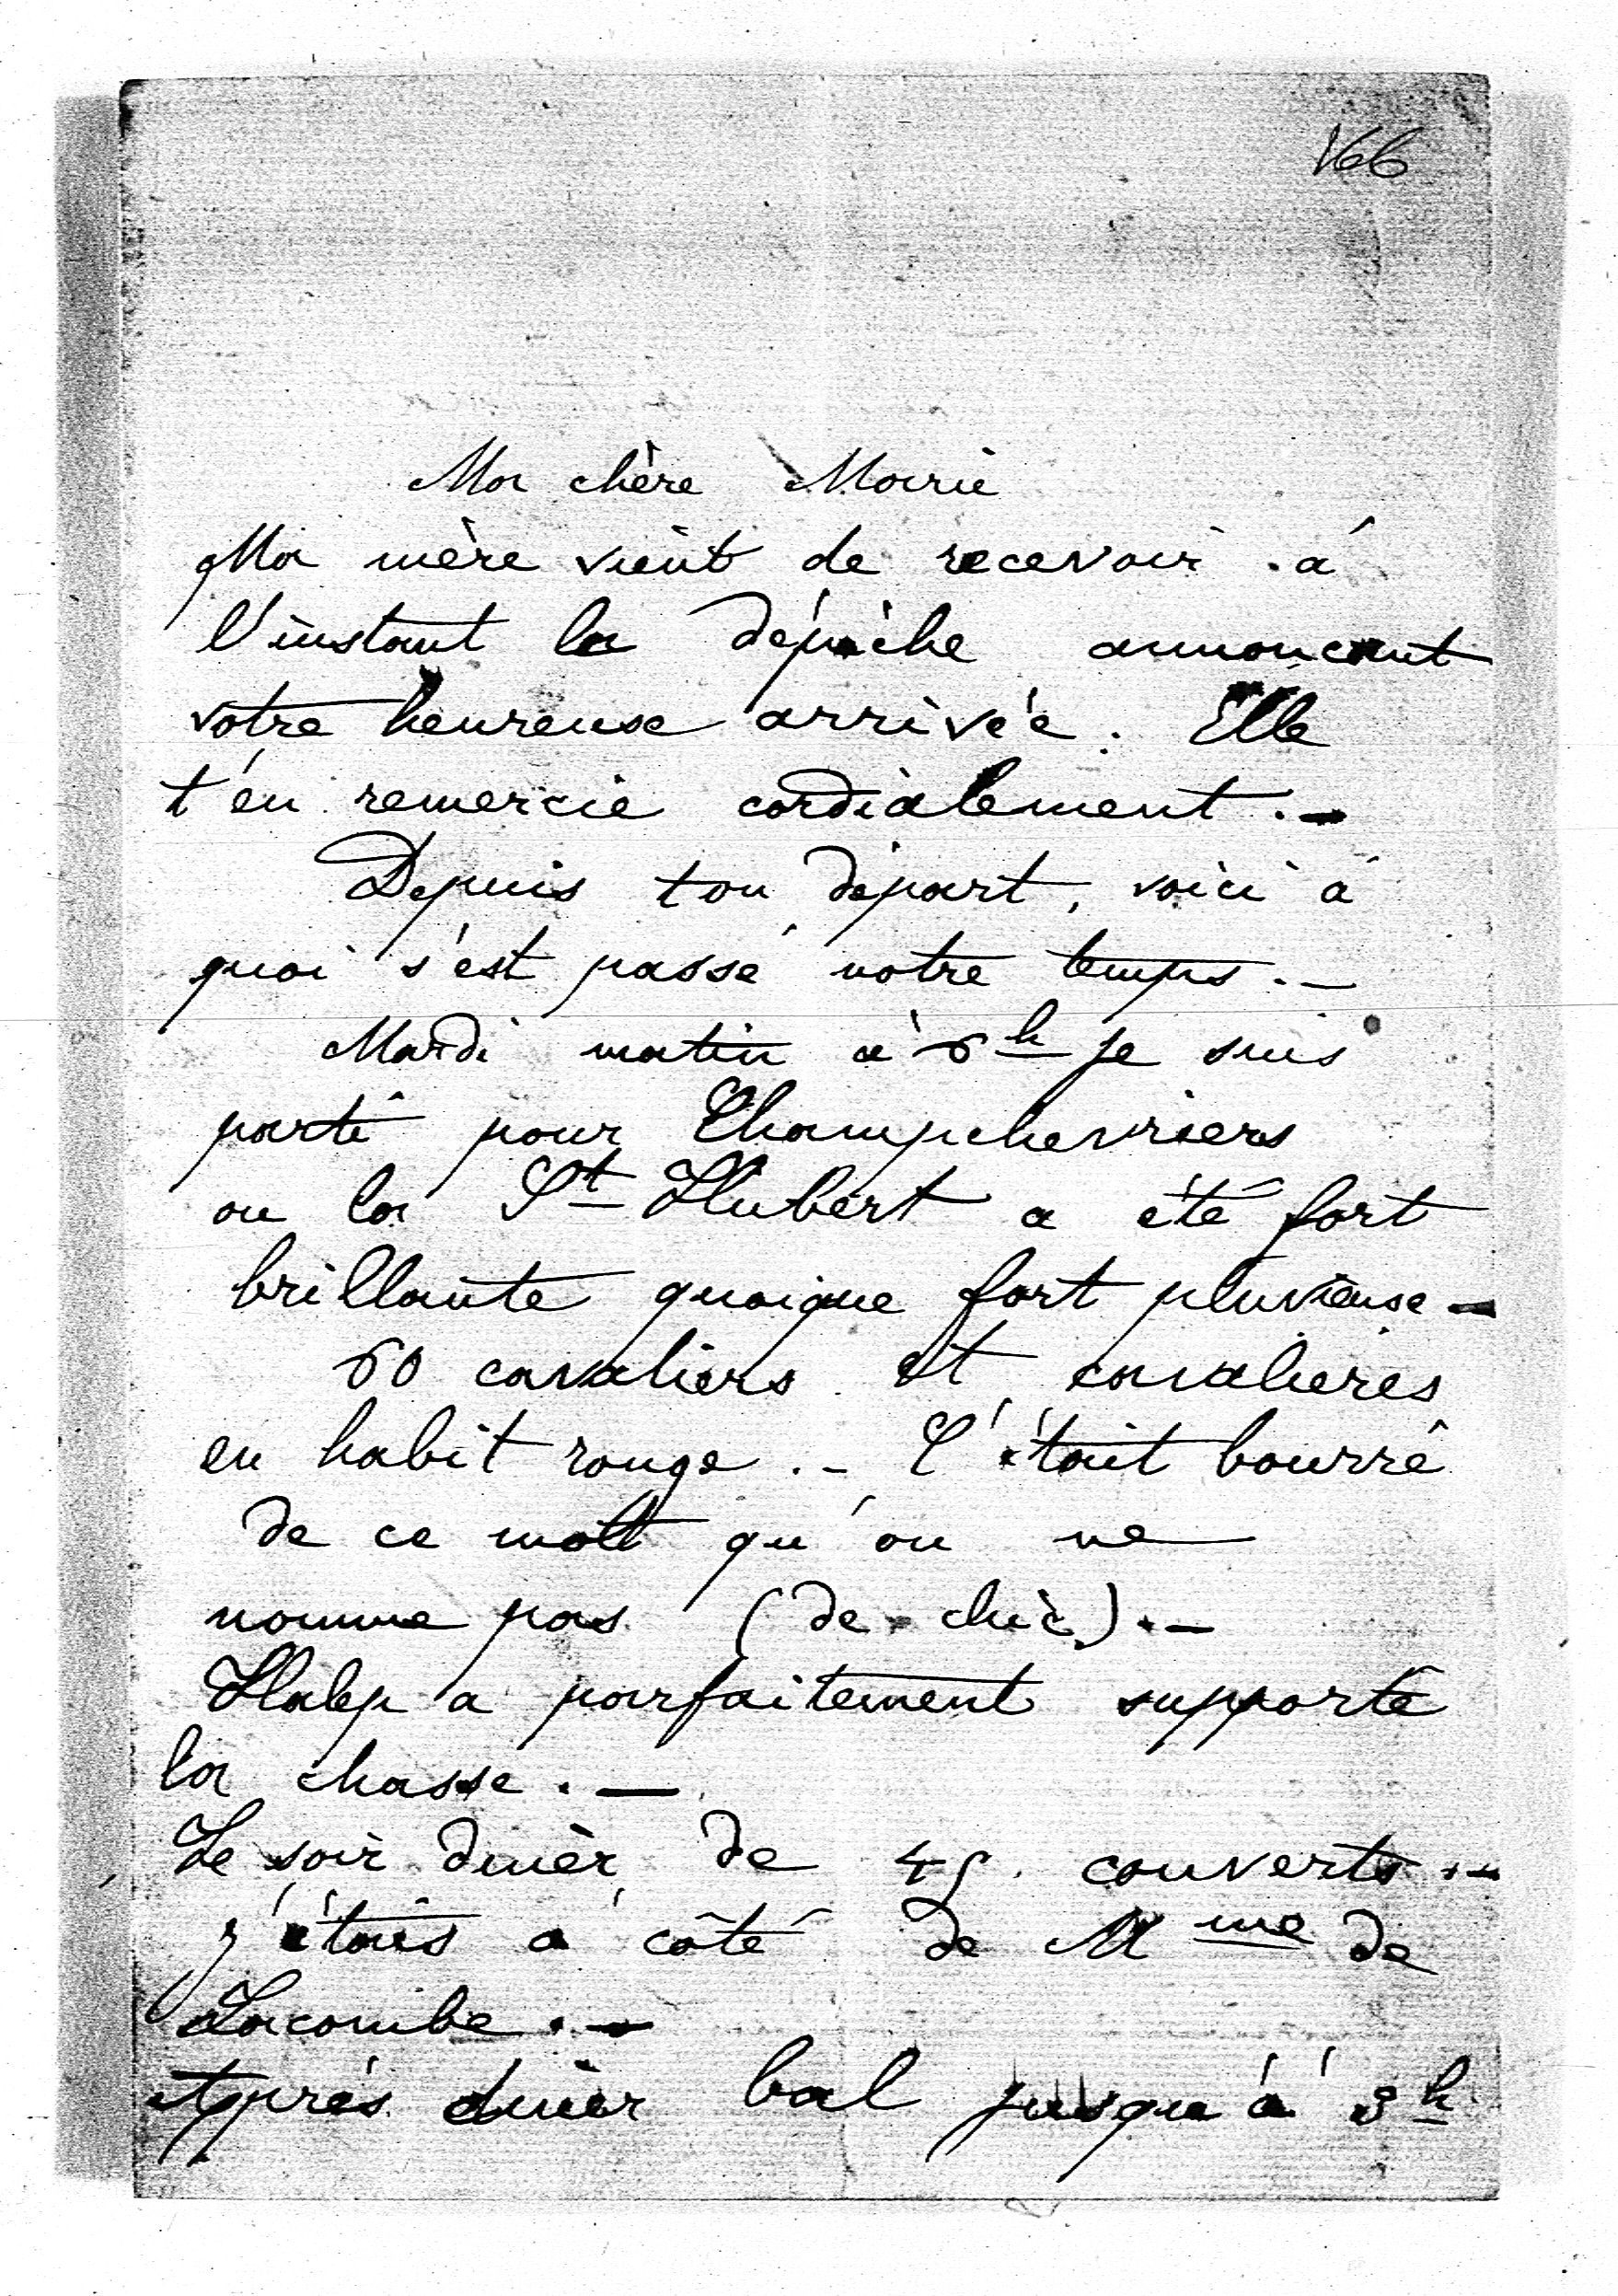 166
Ma chère Marie
Ma mère vient de recevoir à
l'instant la dépèche annoncant
votre heureuse arrivée. Elle
t'en remercie cordialement. _
Depuis ton départ, voici à
quoi s'est passé notre temps. _
Mardi matin à 6h je suis
parti pour Champchevriers
ou la St Hubert a été fort
brillante quoique fort pluvieuse _
60 cavaliers et cavalieres
en habit rouge. _ C'était bourré
de ce mott qu'on ne
nomme pas (de chic). _
Halep a parfaitement supporté
la chasse. _
Le soir diner de 45 couverts. _
j'étais à côté de Mme de
Lacombe. _
Après diner bal jusqu'à 3h